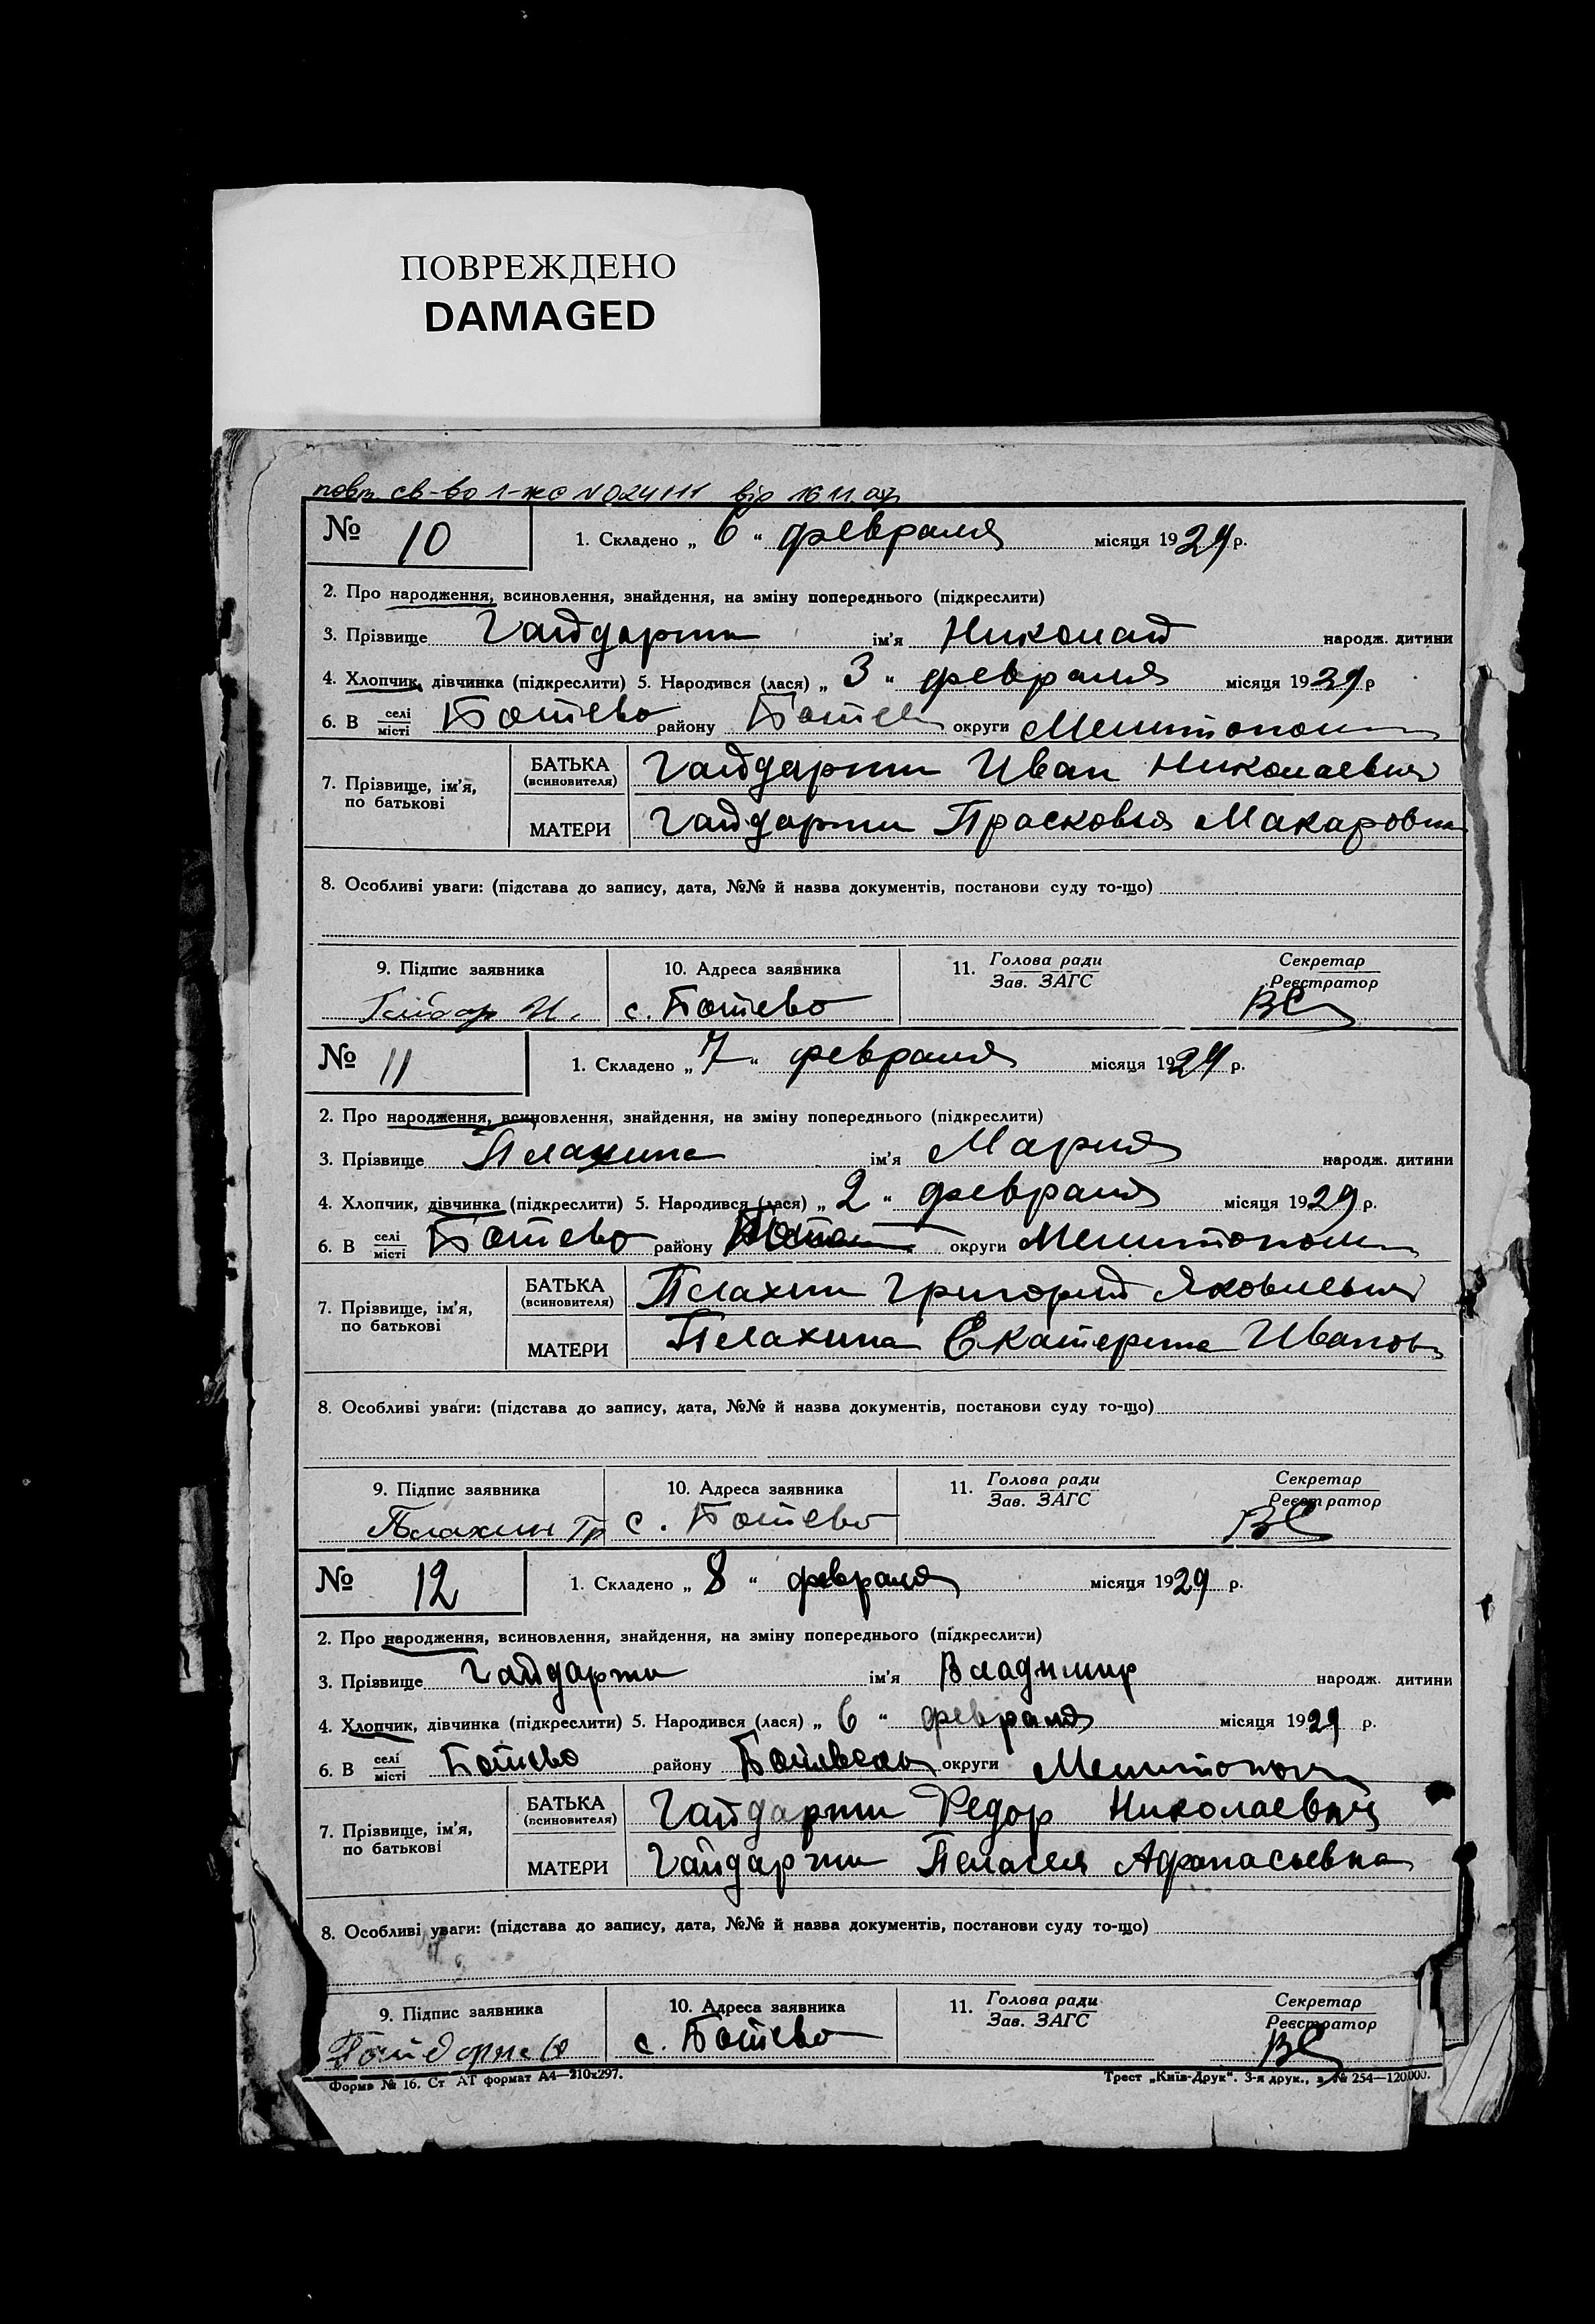 ПОВРЕЖДЕНО
DAMAGED
повт. св-во 1-жс №024111 від 16.11.
№ 10 1. Складено „ 6 “ февраля місяця 1929 р.
2. Про народження, всиновлення, знайдення, на зміну попереднього (підкреслити)
3. Прізвище Гайдаржи ім’я Николай народж. дитини
4. Хлопчик, дівчинка (підкреслити) 5. Народився (лася) „ 3 “ февраля місяця 1929 р
6. В селі місті Ботево району Ботев округи Мелитопол
7. Прізвище, ім’я, по батькові
БАТЬКА (всиновителя) Гайдаржи Иван Николаевич
МАТЕРИ Гайдаржи Прасковья Макаровна
8. Особливі уваги: (підстава до запису, дата, №№ й назва документів, постанови суду то-що)
9. Підпис заявника 10. Адреса заявника 11. Голова ради Зав. ЗАГС Секретар Реєстратор
Гайдар И. с. Ботево
№ 11 1. Складено „ 7 “ февраля місяця 1929 р.
2. Про народження, всиновлення, знайдення, на зміну попереднього (підкреслити)
3. Прізвище Плахина ім’я Мария народж. дитини
4. Хлопчик, дівчинка (підкреслити) 5. Народився (лася) „ 2 “ февраля місяця 1929 р.
6. В селі місті Ботево району округи Мелитопол
7. Прізвище, ім’я, по батькові
БАТЬКА (всиновителя) Плахин Григорий Яковлевич
МАТЕРИ Плахина Екатерина Иванов
8. Особливі уваги: (підстава до запису, дата, №№ й назва документів, постанови суду то-що)
9. Підпис заявника 10. Адреса заявника 11. Голова ради Зав. ЗАГС Секретар Реєстратор
Плахин Гр с. Ботево
№ 12 1. Складено „ 8 “ февраля місяця 1929 р.
2. Про народження, всиновлення, знайдення, на зміну попереднього (підкреслити)
3. Прізвище Гайдаржи ім’я Владимир народж. дитини
4. Хлопчик, дівчинка (підкреслити) 5. Народився (лася) „ 6 “ февраля місяця 1929 р.
6. В селі місті Ботево району Ботевск округи Мелитопол
7. Прізвище, ім’я, по батькові
БАТЬКА (всиновителя) Гайдаржи Федор Николаевич
МАТЕРИ Гайдаржи Пелагея Афанасьевна
8. Особливі уваги: (підстава до запису, дата, №№ й назва документів, постанови суду то-що)
9. Підпис заявника 10. Адреса заявника 11. Голова ради Зав. ЗАГС Секретар Реєстратор
с. Ботево
Форма № 16. Ст АТ формат А4—210х297. Трест „Київ-Друк“. 3-я друк., з. № 254—120.000.